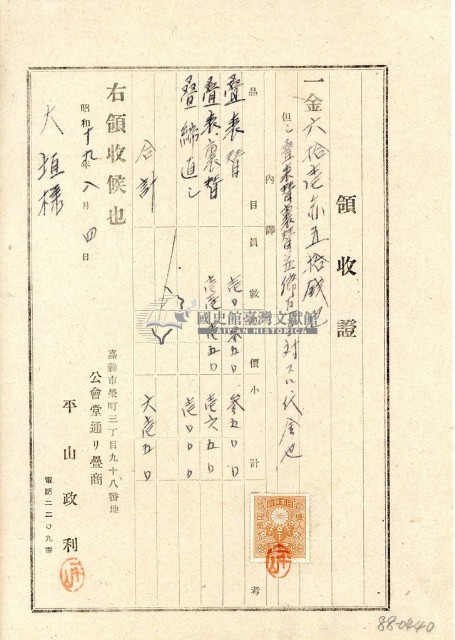 領收證
一金六拾壱円五拾銭也
但シ畳表替裏替並縁直シニ対スル代金也
內譯
品目 員數 價 小計 考
畳表替 壱〇 参五〇 参五〇〇
畳表裏替 壱六五〇
畳縁直シ 壱〇〇〇
合計 六壱五〇
右領收候也
昭和十九年八月四日
大垣様
嘉義市榮町三丁目九十八番地
公會堂通リ疊商
平山政利
電話二二〇九番
國史館臺灣文獻館
TAIWAN HISTORICA
88-0440